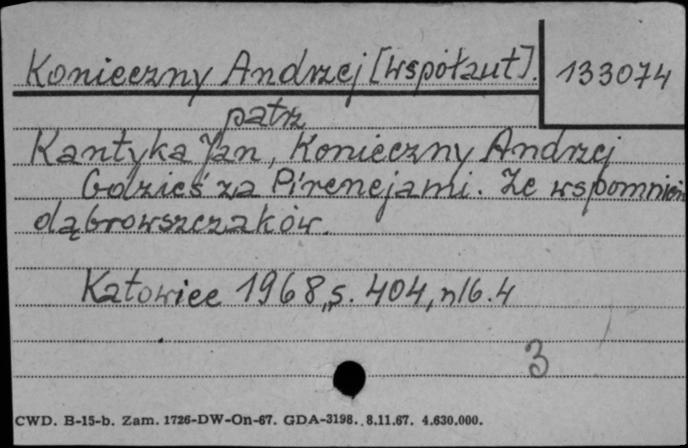 Konieczny Andrzej [współaut]. 133074
patrz
Kantyka Jan, Konieczny Andrzej
Gdzieś za Pirenejami. Ze wspomnień
dąbrowszczaków.
Katowice 1968, s. 404, nlb. 4
3
CWD. B-15-b. Zam. 1726-DW-On-67. GDA-3198. 8.11.67. 4.630.000.